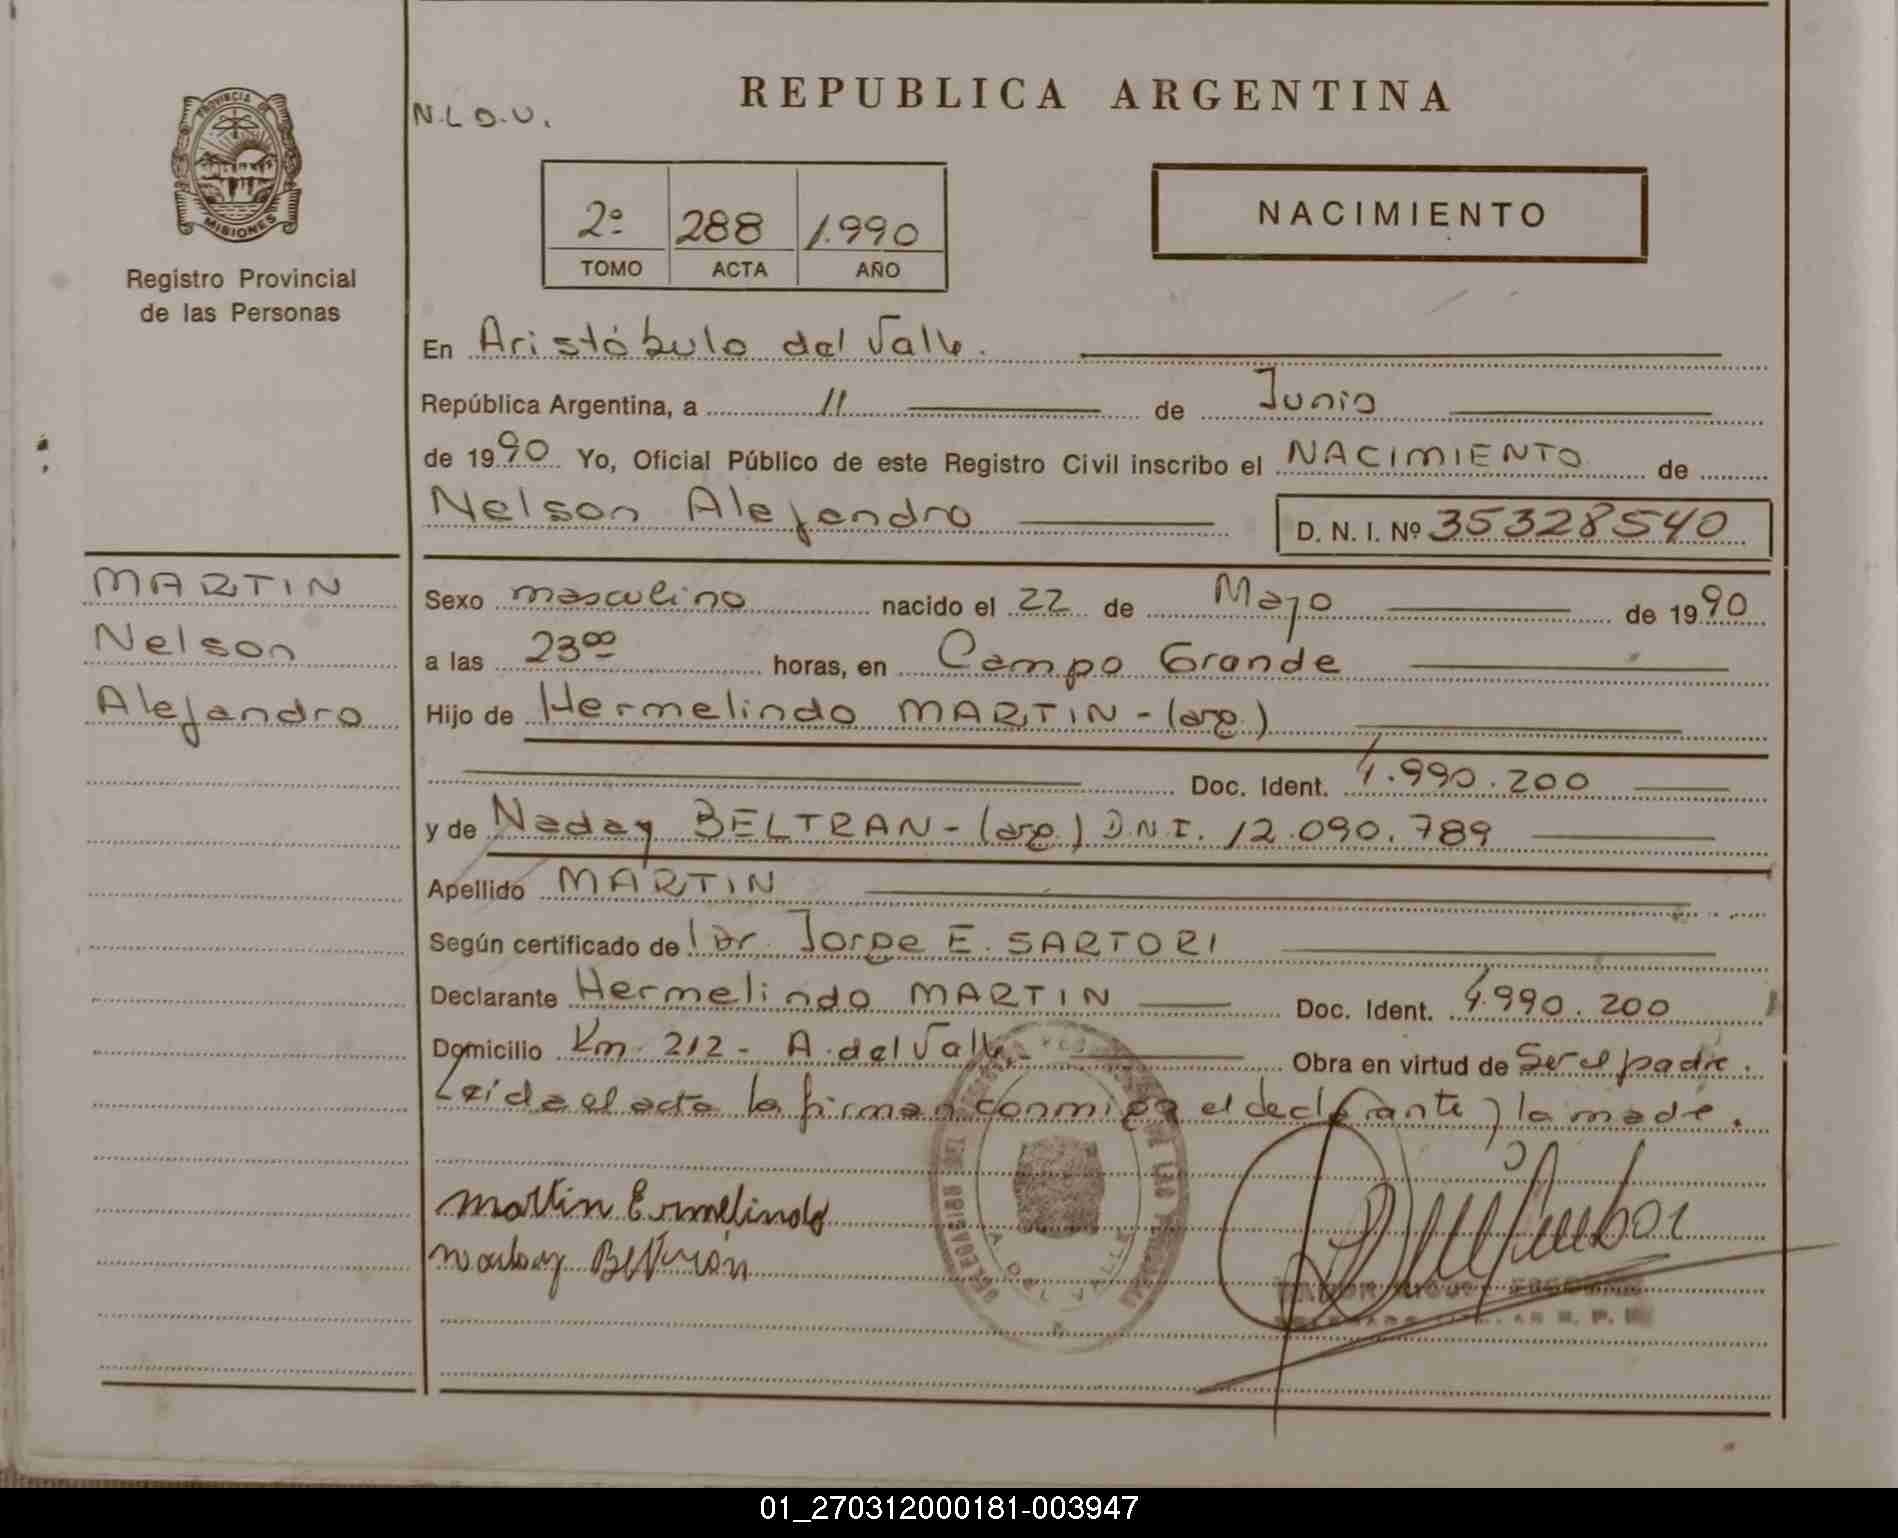 PROVINCIA DE
MISIONES
Registro Provincial
de las Personas
MARTIN
Nelson
Alejandro
N.L.O.U.
REPUBLICA ARGENTINA
2º 288 1.990
TOMO ACTA AÑO
NACIMIENTO
En Aristóbulo del Valle.
República Argentina, a 11 de Junio
de 1990 Yo, Oficial Público de este Registro Civil inscribo el NACIMIENTO de
Nelson Alejandro D. N. I. Nº 35328540
Sexo masculino nacido el 22 de Mayo de 1990
a las 23⁰⁰ horas, en Campo Grande
Hijo de Hermelindo MARTIN - (arg.)
Doc. Ident. 4.990.200
y de Naday BELTRAN - (arg.) D.N.I. 12.090.789
Apellido MARTIN
Según certificado de Dr. Jorge E. SARTORI
Declarante Hermelindo MARTIN Doc. Ident. 4.990.200
Domicilio Km. 212 - A. del Valle Obra en virtud de Ser el padre.
Leída el acta la firman conmigo el declarante y la madre.
Martin Ermelindo
Beltrán
A. DEL VALLE
01_270312000181-003947